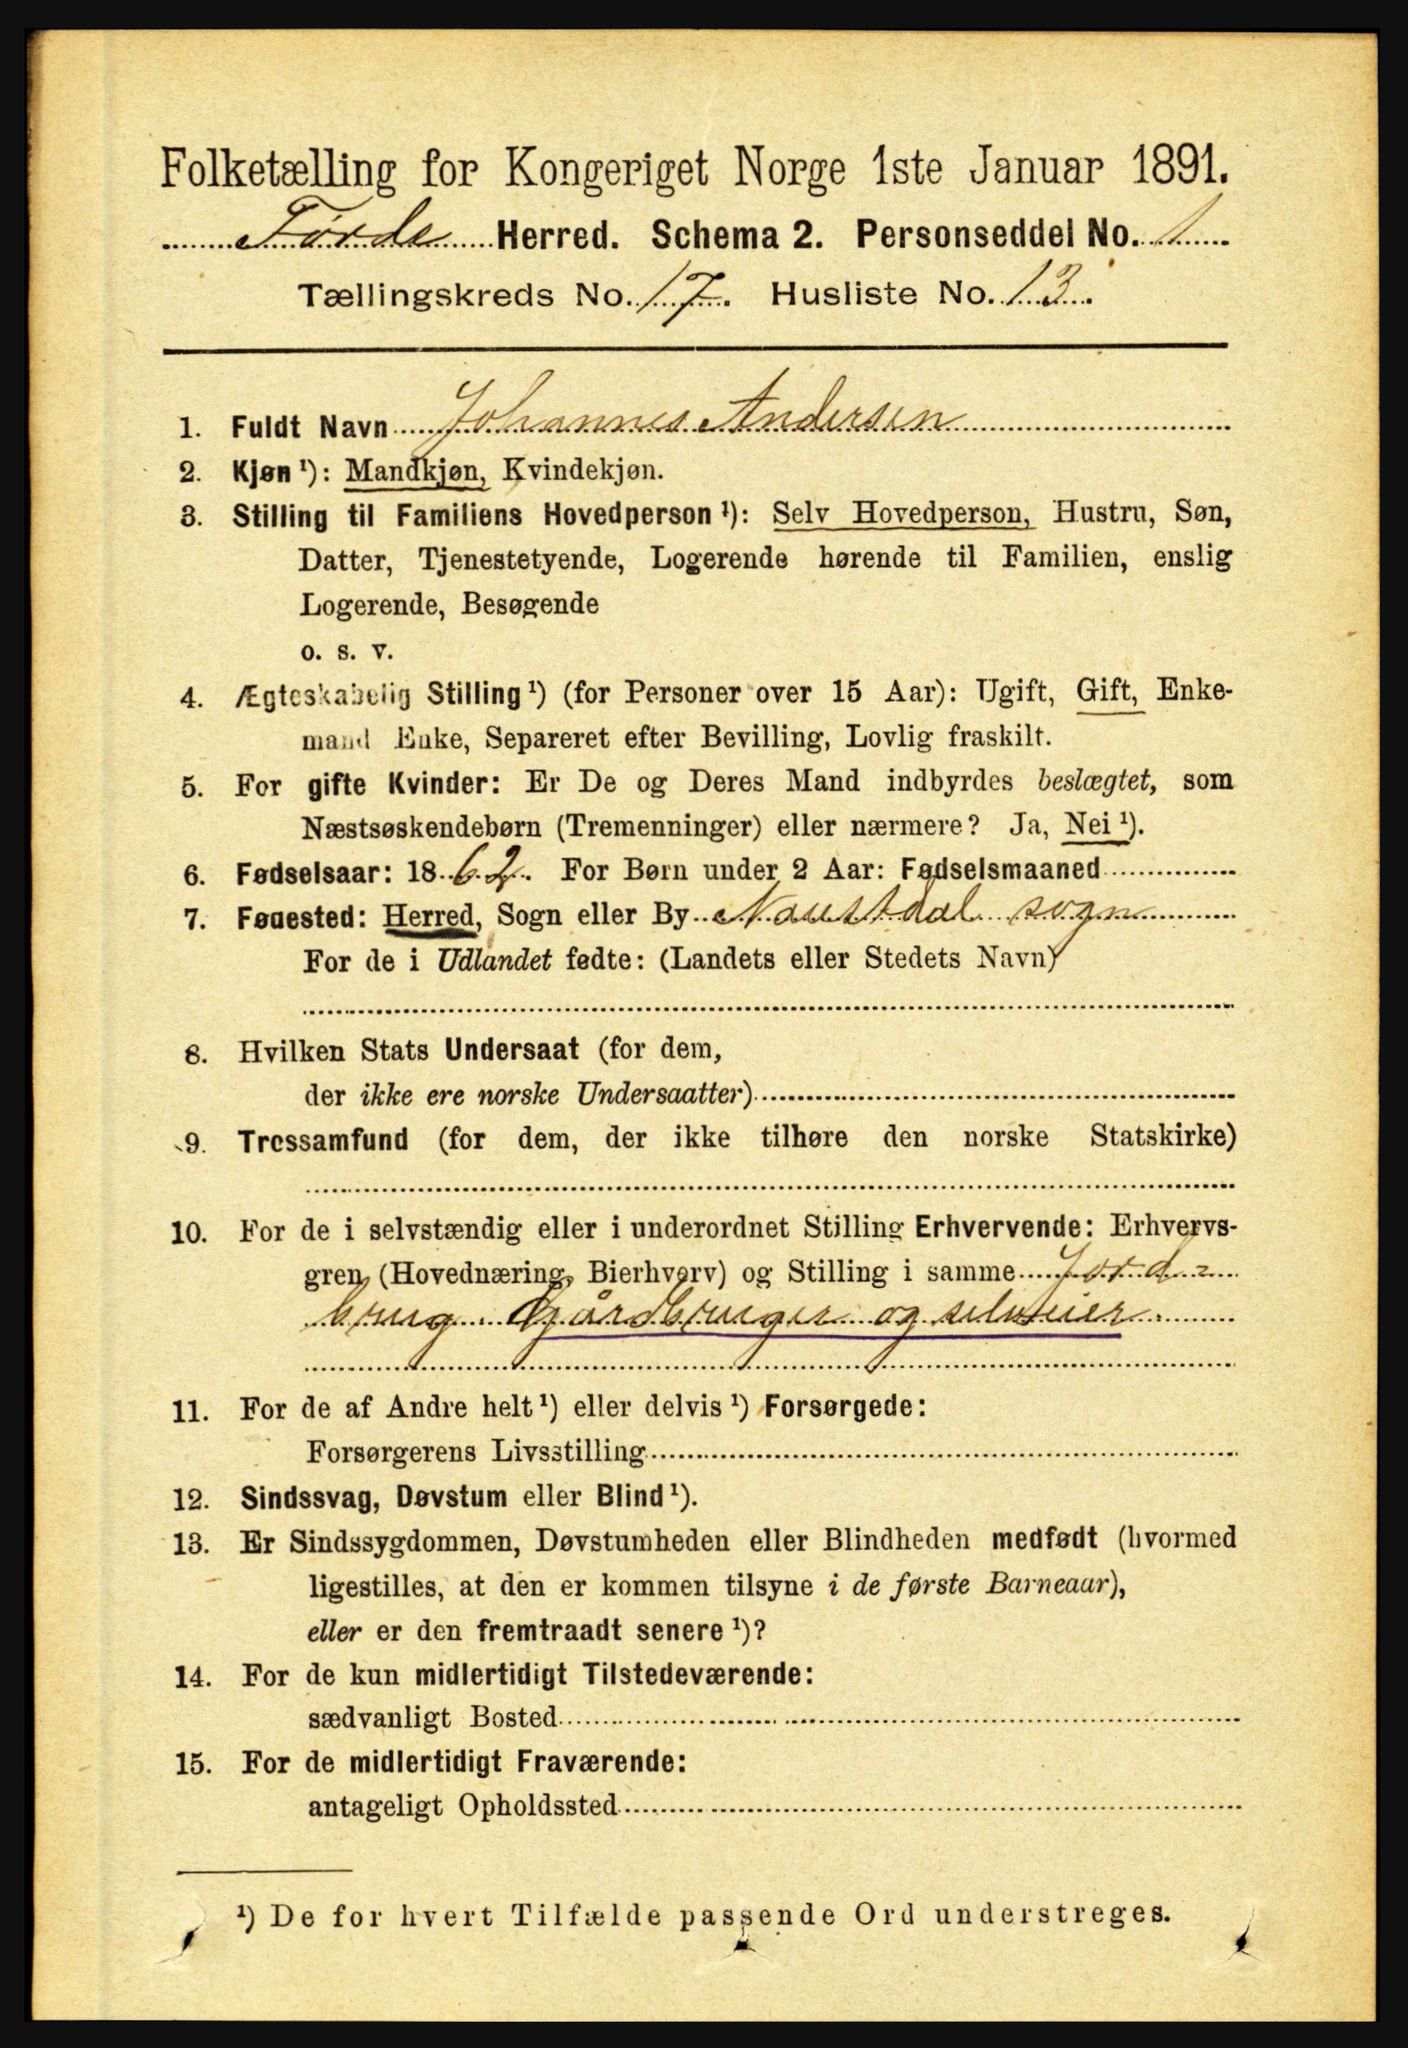 Folketælling for Kongeriget Norge 1ste Januar 1891.
Førde Herred. Schema 2. Personseddel No. 1
Tællingskreds No. 17. Husliste No. 13.
1. Fuldt Navn Johannes Andersen
2. Kjøn ¹): Mandkjøn, Kvindekjøn.
3. Stilling til Familiens Hovedperson ¹): Selv Hovedperson, Hustru, Søn,
Datter, Tjenestetyende, Logerende hørende til Familien, enslig
Logerende, Besøgende
o. s. v.
4. Ægteskabelig Stilling ¹) (for Personer over 15 Aar): Ugift, Gift, Enke-
mand Enke, Separeret efter Bevilling, Lovlig fraskilt.
5. For gifte Kvinder: Er De og Deres Mand indbyrdes beslægtet, som
Næstsøskendebørn (Tremenninger) eller nærmere? Ja, Nei ¹).
6. Fødselsaar: 1862. For Børn under 2 Aar: Fødselsmaaned
7. Føuested: Herred, Sogn eller By Naustdal sogn
For de i Udlandet fødte: (Landets eller Stedets Navn)
8. Hvilken Stats Undersaat (for dem,
der ikke ere norske Undersaatter)
9. Trossamfund (for dem, der ikke tilhøre den norske Statskirke)
10. For de i selvstændig eller i underordnet Stilling Erhvervende: Erhvervs-
gren (Hovednæring, Bierhverv) og Stilling i samme Jord-
brug. Gårdbruger og selveier.
11. For de af Andre helt ¹) eller delvis ¹) Forsørgede:
Forsørgerens Livsstilling
12. Sindssvag, Døvstum eller Blind ¹).
13. Er Sindssygdommen, Døvstumheden eller Blindheden medfødt (hvormed
ligestilles, at den er kommen tilsyne i de første Barneaar),
eller er den fremtraadt senere ¹)?
14. For de kun midlertidigt Tilstedeværende:
sædvanligt Bosted
15. For de midlertidigt Fraværende:
antageligt Opholdssted
¹) De for hvert Tilfælde passende Ord understreges.